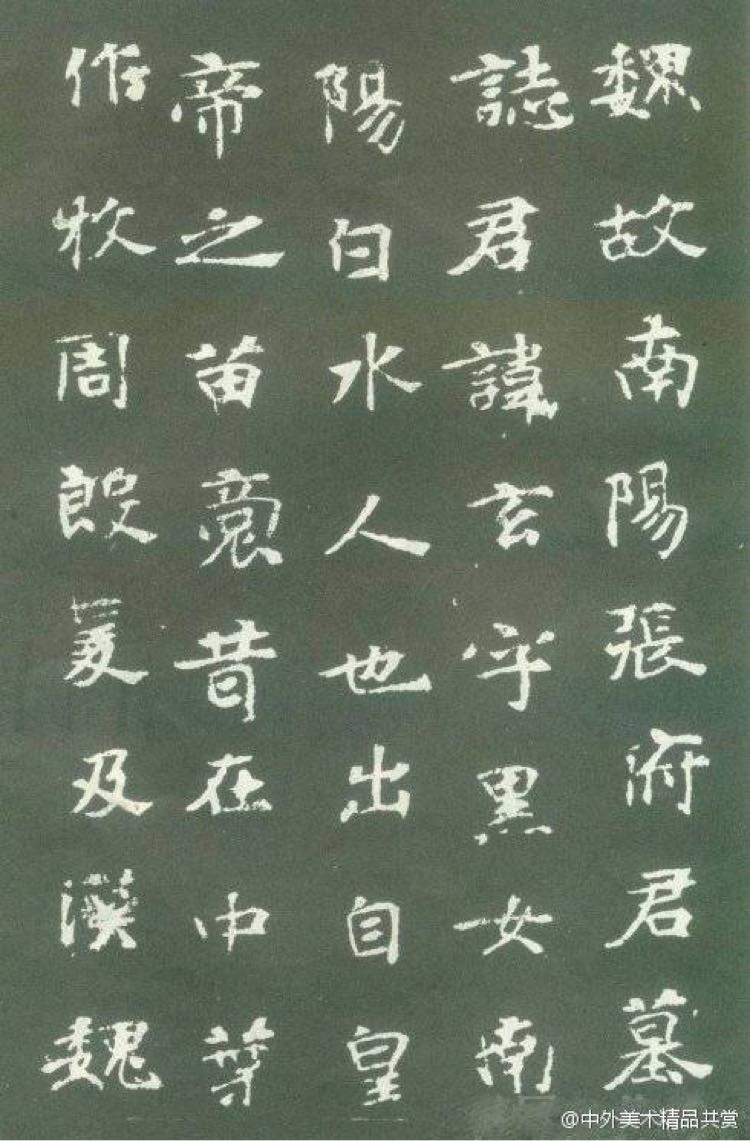 魏故南陽張府君墓
誌君諱玄字黑女南
陽白水人也出自皇
帝之苗裔昔在中葉
作牧周殷爰及漢魏
@中外美术精品共赏